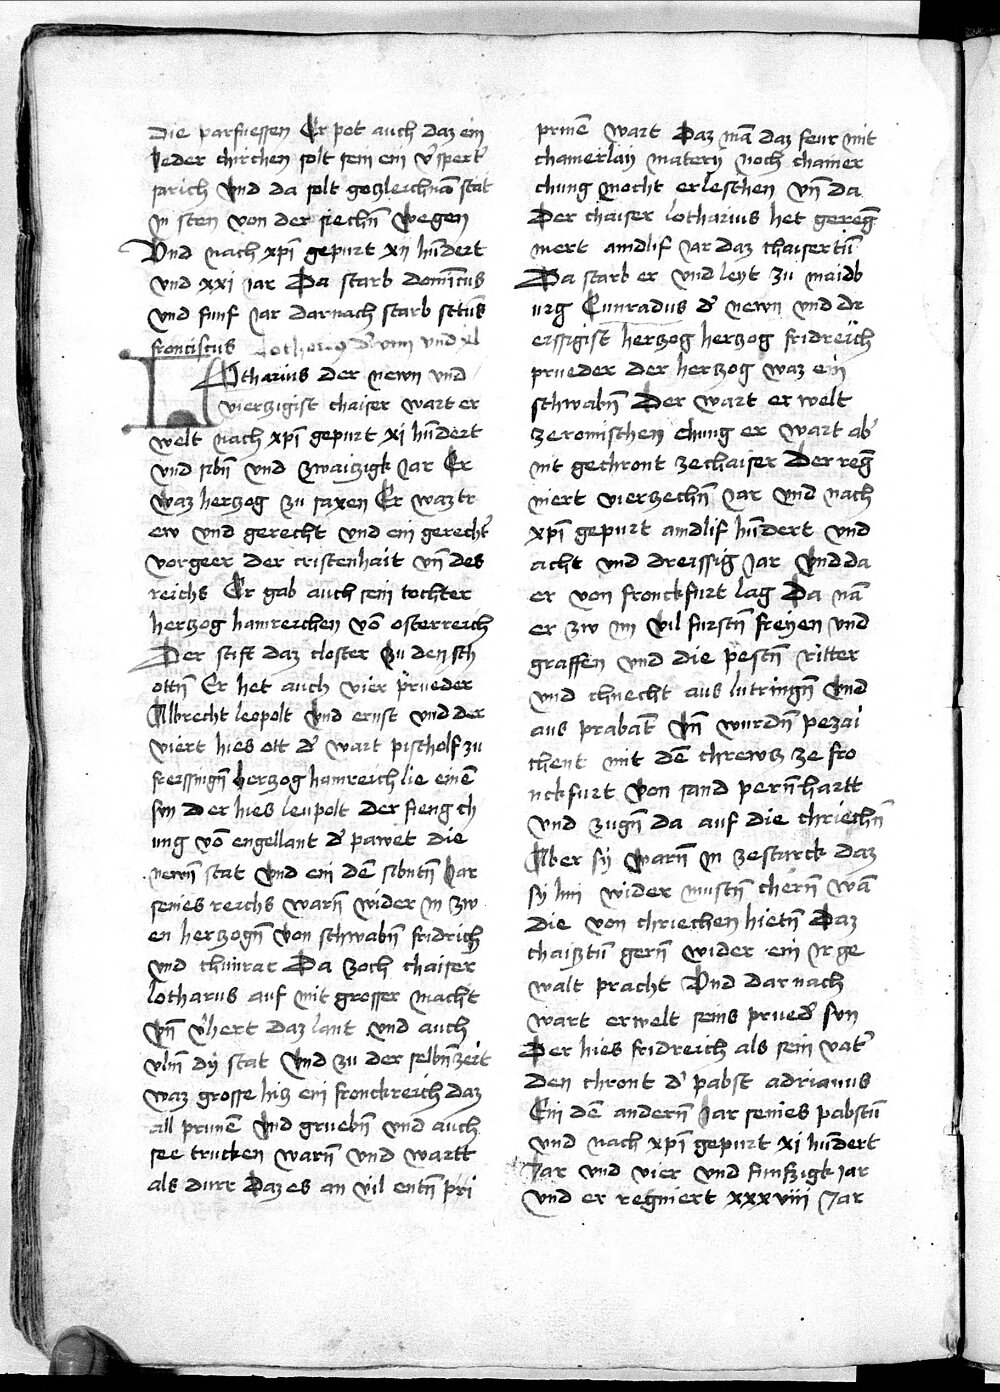 die parfuessen Er pot auch daz ein
Jeder chirchen solt sein ein v̓spert̓
sarich vnd da solt gotzleichnā stat
in sten von der siechn̄ wegen
Vnd nach xp̄i gepurt xii hūdert
vnd xxi iar Da starb domīcus
vnd funf Jar darnach starb sctūs
franciscus Lotharius d̓ viiii vnd xl
LOtharius der newn vnd
vierzigist chaiser wart er
welt nach xp̄i gepurt xi hūdert
vnd sibn̄ vnd zwaitzigk Jar Er
waz herzog zu saxen Er waz tr
ew vnd gerecht vnd ein gerecht̓
vorgeer der cristenhait vn̄ des
reichs Er gab auch sein tochter
herzog hainreichen vō osterreich
Der stift daz closter zu den sch
ottn̄ Er het auch vier prueder
Albrecht leopolt vnd ernst vnd der
viert hies ott d̓ wart pischolf zu
freissingn̄ herzog hainreich lie einē
sun der hies leupolt der fieng ch
unig vō engellant d̓ pawet die
newn̄ stat vnd ein dē sibntn̄ Jar
seines reichs warn̄ wider in zw
en herzogn̄ von schwabn̄ fridrich
vnd chunrat Da zoch chaiser
lotharius auf mit grosser macht
vn̄ v̓hert daz lant vnd auch
vlm̄ dy stat vnd zu der selbn̄ zeit
waz grosse hiz ein fronckreich daz
all prunē vnd gruebn̄ vnd auch
see trucken warn̄ vnd wartt
als durr Daz es an vil entn̄ pri
prinē wart Daz mā daz feur mit
chainerlay matery noch chainer
chung mocht erleschen vn̄ da
Der chaiser lotharius het gereḡ
niert aindlif Jar daz chaisertū
Da starb er vnd leyt zu maidb
urg Cunradus d̓ newn vnd dr
eissigist herzog herzog fridreich
prueder der herzog waz ein
schwabn̄ Der wart erwelt
ze romischen chung er wart ab̓
nit gechront ze chaiser Der reḡ
niert vierzechn̄ Jar vnd nach
xp̄i gepurt aindlif hūdert vnd
acht vnd dreissig Jar vnd da
er von fronckfurt lag Da nā
er zw im vil furstn̄ freyen vnd
graffen vnd die pestn̄ ritter
vnd chnecht aus lutringn̄ vnd
aus prabāt vn̄ wurdn̄ pezai
chent mit dē chrewz ze fro
nckfurt von sand pern̄hartt
vnd zugn̄ da auf die chriechn̄
Aber sy warn̄ in ze starck daz
sy hin wider mustn̄ chern̄ wā
die von chriechen hietn̄ Daz
chaisztū gern̄ wider ein Ir ge
walt pracht Vnd darnach
wart erwelt seins prued̓ sun
Der hies fridreich als sein vat̓
den chront d̓ pabst adrianus
Ein dē andern̄ Jar seines pabstū
vnd nach xp̄i gepurt xi hūdert
Jar vnd vier vnd funfzigk Jar
vnd er regniert xxxviii Jar